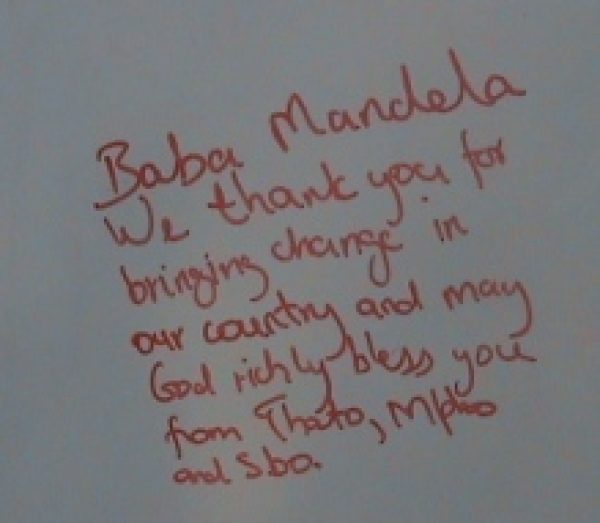 Baba Mandela
We thank you for
bringing change in
our country and may
God richly bless you
from Thato, Mpho
and Sbo.